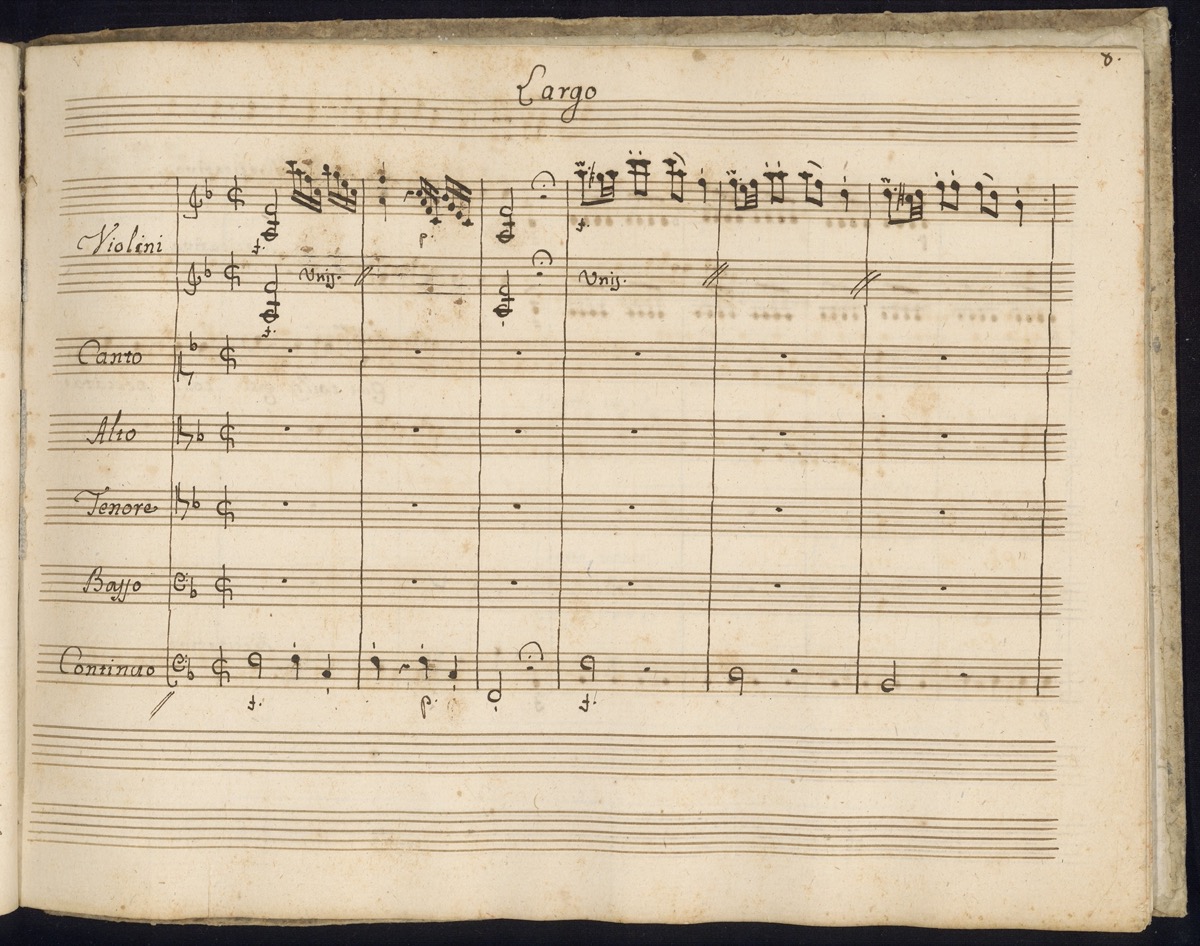 8.
Largo
Violini
f.
p.
f.
Unis.
Unis.
f.
Canto
Alto
Tenore
Basso
Continuo
f.
p.
f.